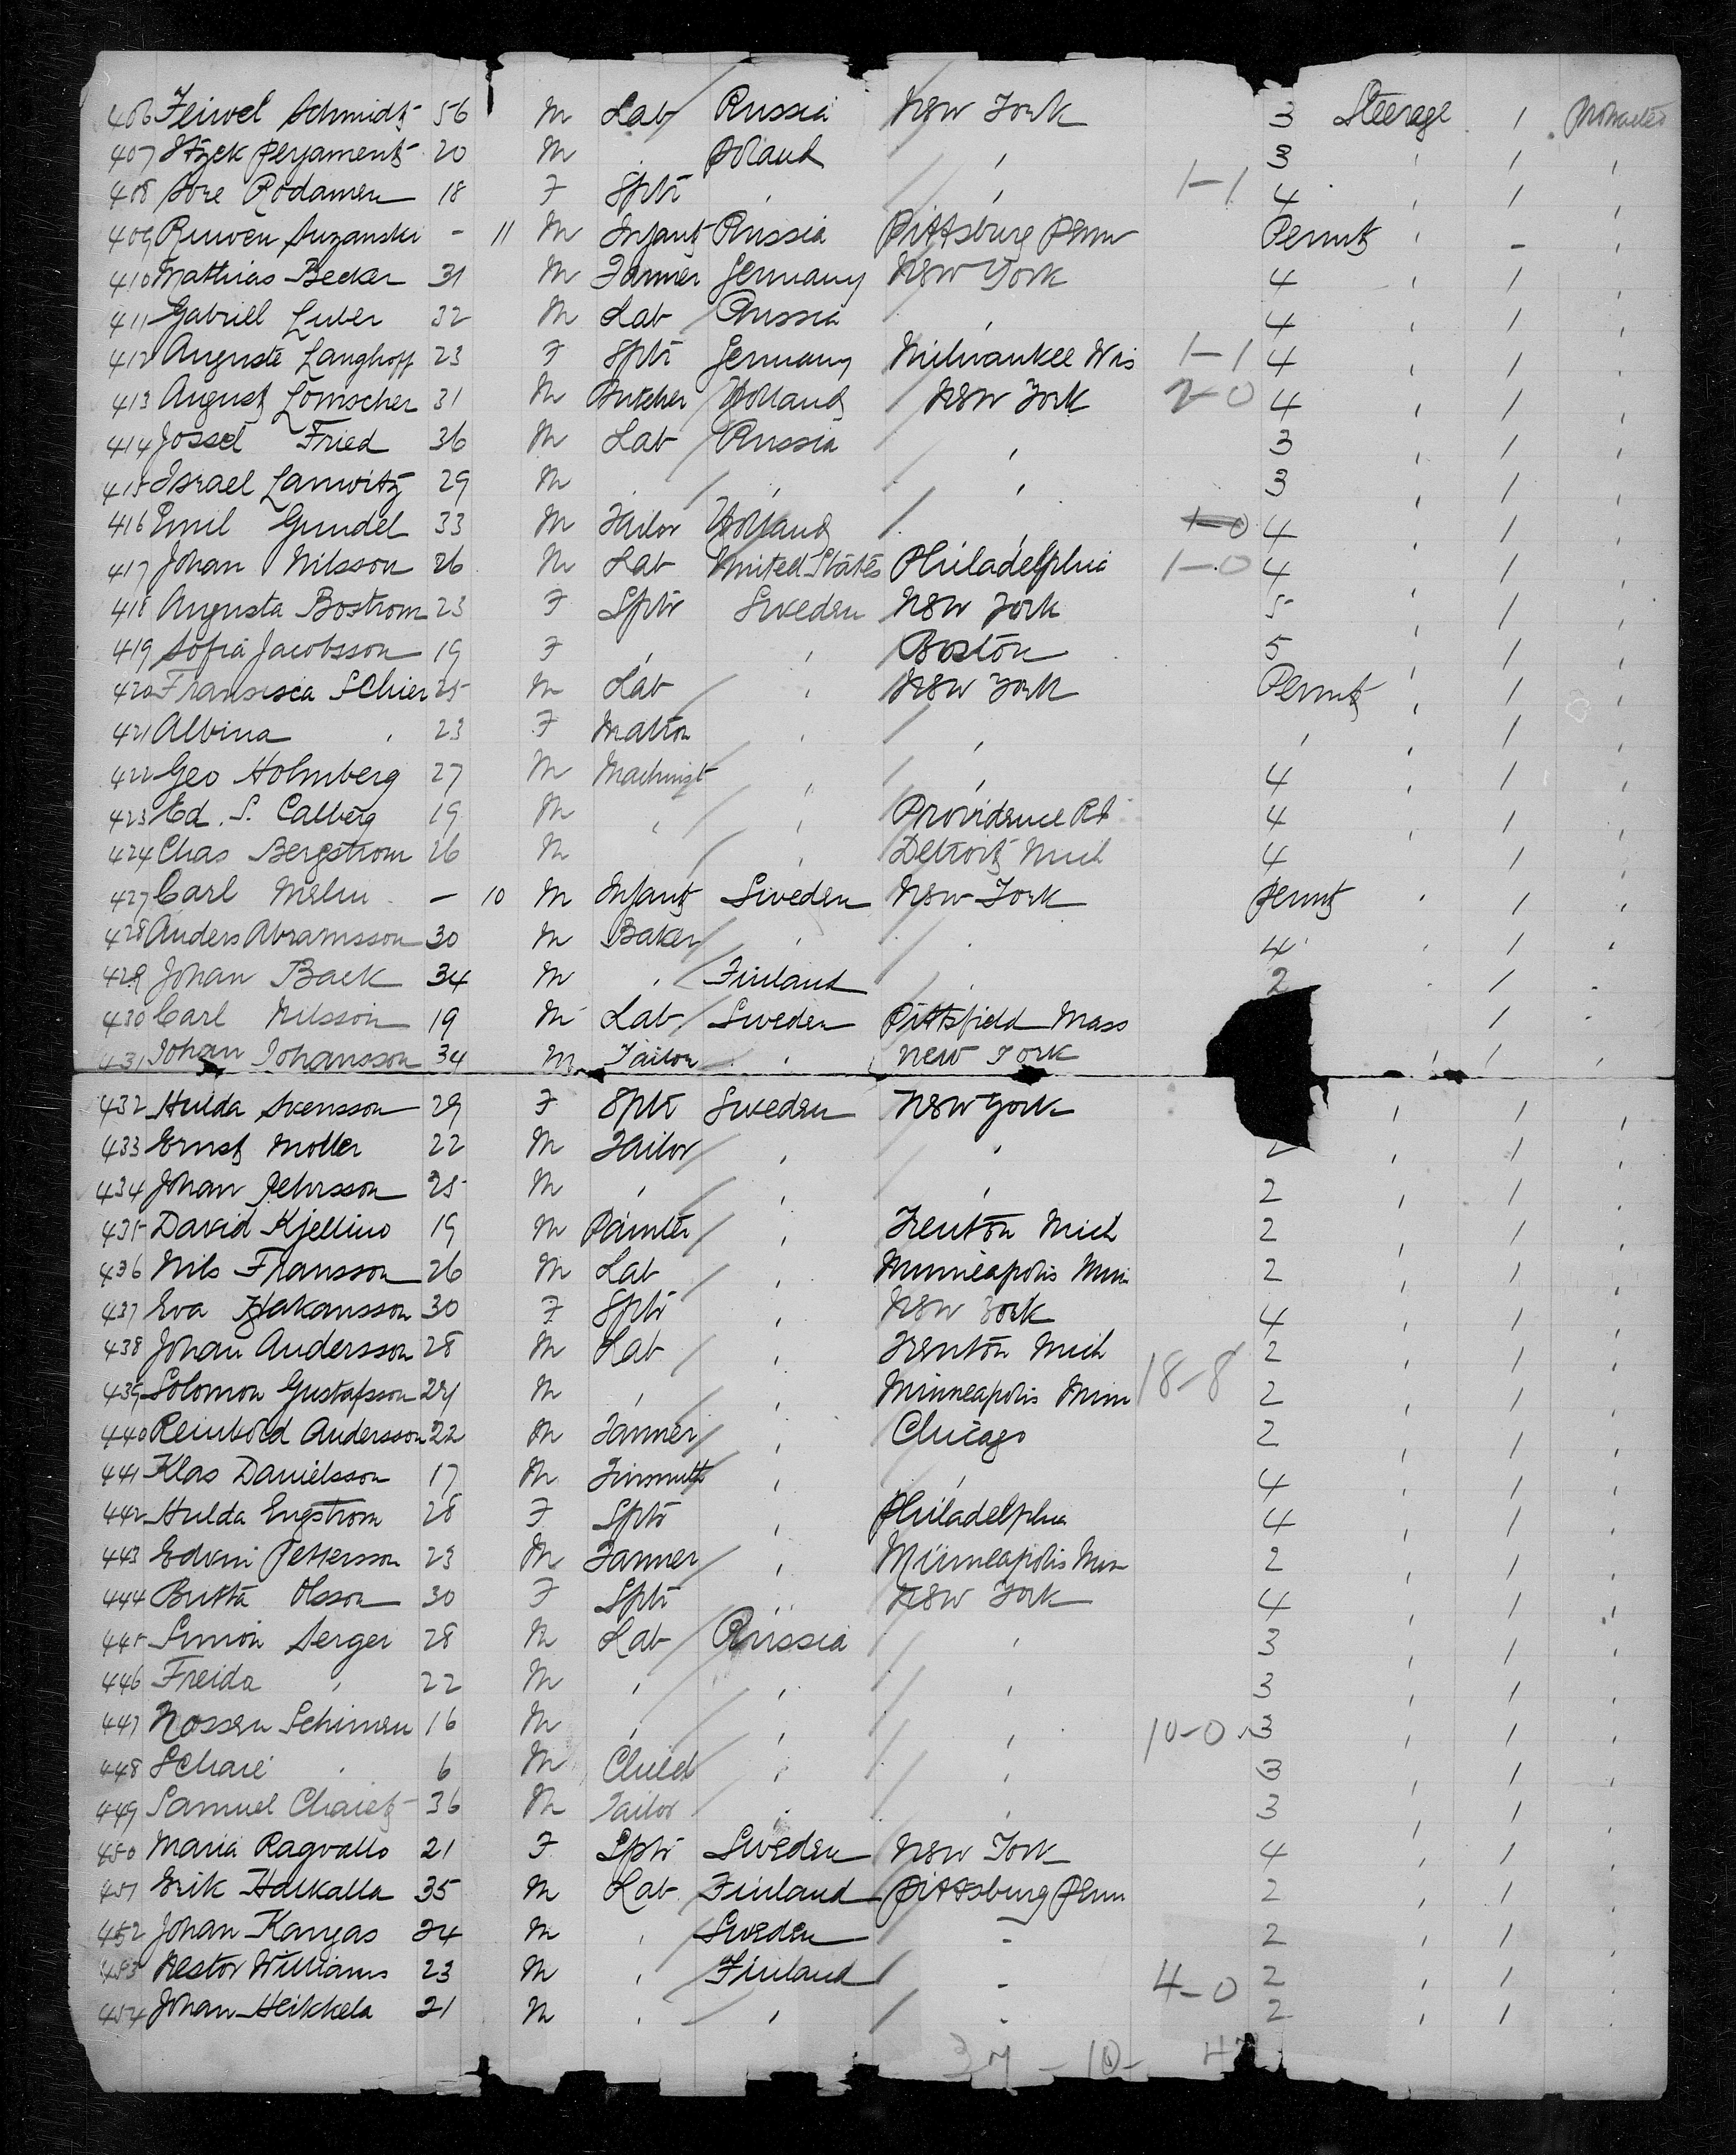 406 Feiwel Schmidt 56 M Lab Russia New York 3 Steerage 1 Protracted
407 Itzek Peryament 20 M " Poland " 3 " 1 "
408 Sore Rodamen 18 F Sptr " " 1-1 4 " 1 "
409 Ruwen Suzanski - 11 M Infant Russia Pittsburg Penn Permit " - "
410 Mathias Becker 31 M Farmer Germany New York 4 " 1 "
411 Gabriel Luber 32 M Lab Russia " 4 " 1 "
412 Auguste Langhoff 23 F Sptr Germany Milwaukee Wis 1-1 4 " 1 "
413 August Lomscher 31 M Butcher Holland New York 2-0 4 " 1 "
414 Jossel Fried 36 M Lab Russia " 3 " 1 "
415 Israel Lanwitz 29 M " " " 3 " 1 "
416 Emil Gundel 33 M Tailor Holland " 1-0 4 " 1 "
417 Johan Nilsson 26 M Lab United States Philadelphia 1-0 4 " 1 "
418 Augusta Bostrom 23 F Sptr Sweden New York 5 " 1 "
419 Sofia Jacobsson 19 F " " Boston 5 " 1 "
420 Fransisca Schier 25 M Lab " New York Permit " 1 "
421 Albina " 23 F Matron " " " " 1 "
422 Geo Holmberg 27 M Machinist " " 4 " 1 "
423 Ed. S. Calberg 19 M " " Providence RI 4 " 1 "
424 Chas Bergstrom 26 M " Detroit Mich 4 " 1 "
427 Carl Melin - 10 M Infant Sweden New York Permit " 1 "
428 Anders Abramsson 30 M Baker " " 4 " 1 "
429 Johan Back 34 M " Finland " 2 " 1 "
430 Carl Nilsson 19 M Lab Sweden Pittsfield Mass 1 "
431 Johan Johansson 34 M Tailor " New York " 1 "
432 Hulda Svensson 29 F Sptr Sweden New York " 1 "
433 Ernst Moller 22 M Tailor " " 2 " 1 "
434 Johan Pehrsson 25 M " " " 2 " 1 "
435 David Kjellino 19 M Painter " Trenton Mich 2 " 1 "
436 Nils Fransson 26 M Lab " Minneapolis Min 2 " 1 "
437 Eva Hakansson 30 F Sptr " New York 4 " 1 "
438 Johan Andersson 28 M Lab " Trenton Mich 2 " 1 "
439 Solomon Gustafsson 24 M " " Minneapolis Minn 18-8 2 " 1 "
440 Reinhold Andersson 22 M Farmer " Chicago 2 " 1 "
441 Klas Danielsson 17 M Tinsmith " " 4 " 1 "
442 Hulda Engstrom 28 F Sptr " Philadelphia 4 " 1 "
443 Edvin Pettersson 23 M Farmer " Minneapolis Min 2 " 1 "
444 Britta Olsson 30 F Sptr " New York 4 " 1 "
445 Simon Serger 28 M Lab Russia " 3 " 1 "
446 Freida " 22 M " " " 3 " 1 "
447 Nossen Schimen 16 M " " " 10-0 3 " 1 "
448 Scharie " 6 M Child " " 3 " 1 "
449 Samuel Chaietz 36 M Tailor " " 3 " 1 "
450 Maria Ragvallo 21 F Sptr Sweden New York 4 " 1 "
451 Erik Haikalla 35 M Lab Finland Pittsburg Penn 2 " 1 "
452 Johan Kangas 24 M " Sweden " 2 " 1 "
453 Nestor Williams 23 M " Finland " 4-0 2 " 1 "
454 Johan Heikkela 21 M " " " 2 " 1 "
37-10-